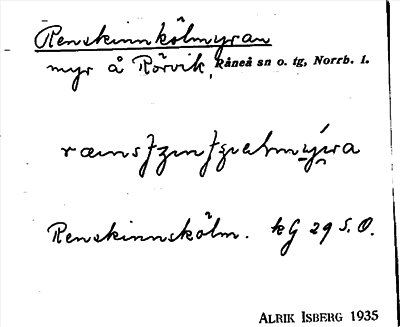 Renskinnkölmyran
myr å Rörvik, Råneå sn o. tg, Norrb. l.
Renskinnskölm. kG 29 S.O.
ALRIK ISBERG 1935